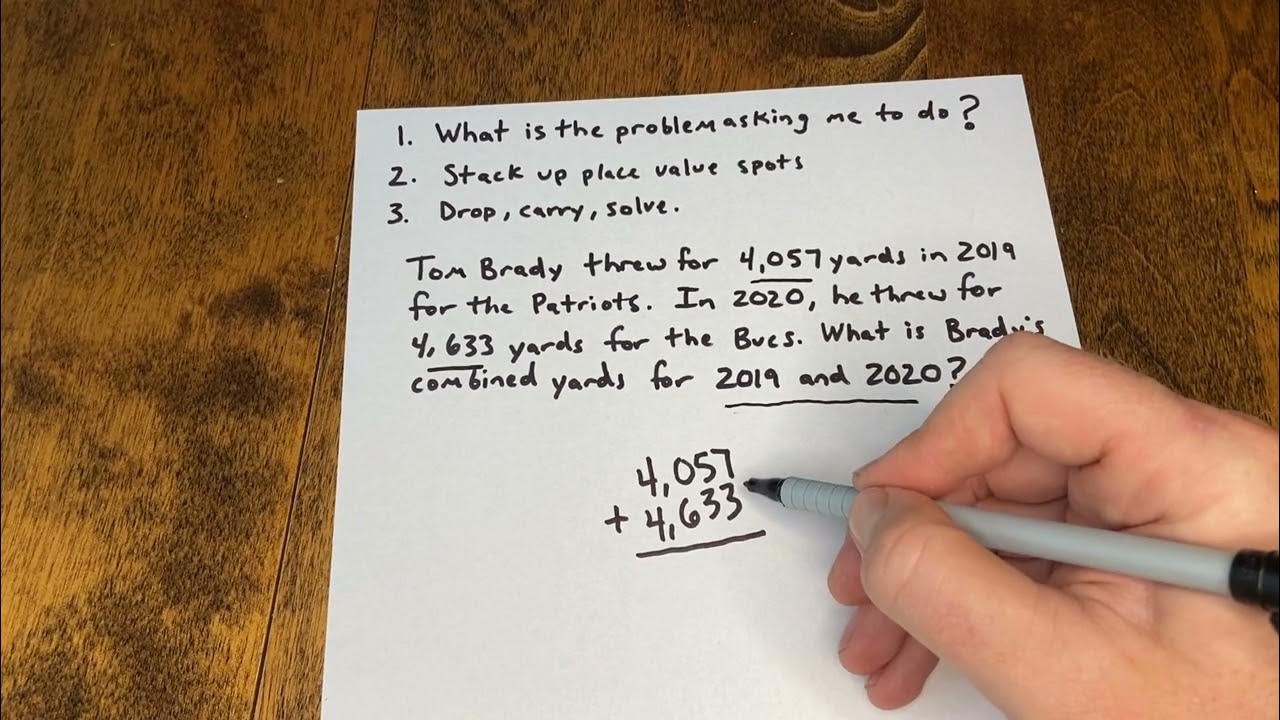 1. What is the problem asking me to do?
2. Stack up place value spots
3. Drop, carry, solve.
Tom Brady threw for 4,057 yards in 2019
for the Patriots. In 2020, he threw for
4,633 yards for the Bucs. What is Brady's
combined yards for 2019 and 2020?
4,057
+ 4,633